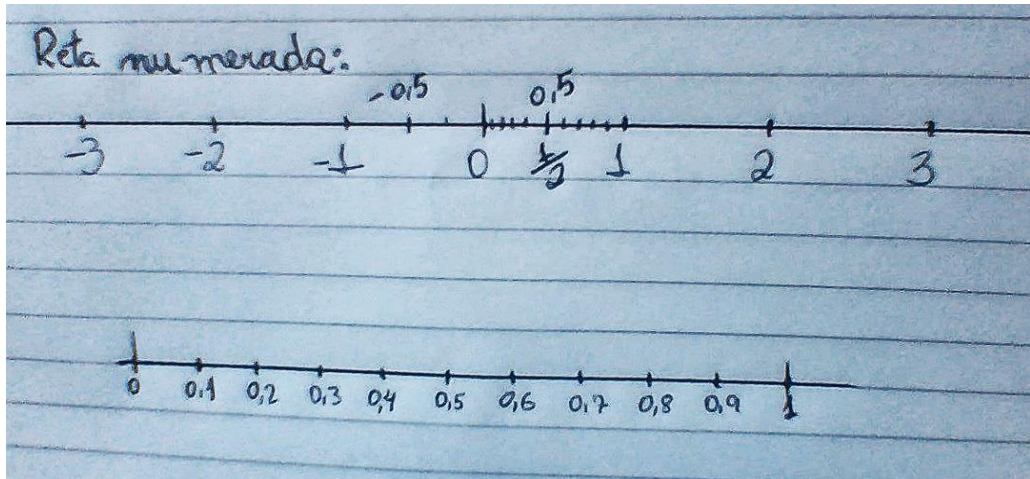 Reta numerada:
-0,5 0,5
-3 -2 -1 0 1/2 1 2 3
0 0,1 0,2 0,3 0,4 0,5 0,6 0,7 0,8 0,9 1